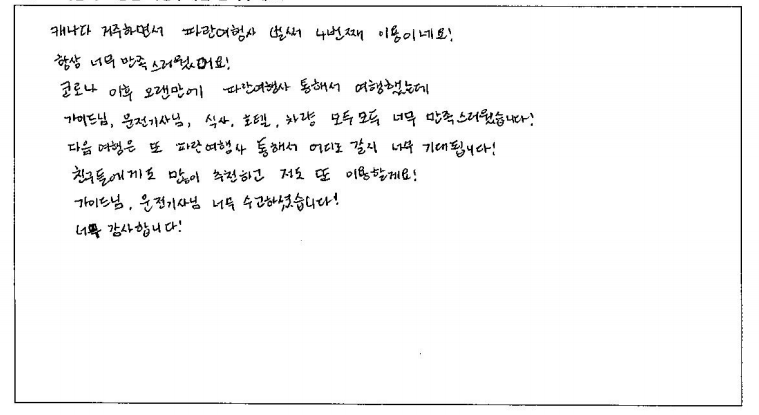 캐나다 거주하면서 파란여행사 벌써 4번째 이용이네요!
항상 너무 만족스러웠어요!
코로나 이후 오랜만에 파란여행사 통해서 여행했는데
가이드님, 운전기사님, 식사, 호텔, 차량 모두모두 너무 만족스러웠습니다!
다음 여행은 또 파란여행사 통해서 어디로 갈지 너무 기대됩니다!
친구들에게도 많이 추천하고 저도 또 이용할게요!
가이드님, 운전기사님 너무 수고하셨습니다!
너무 감사합니다!